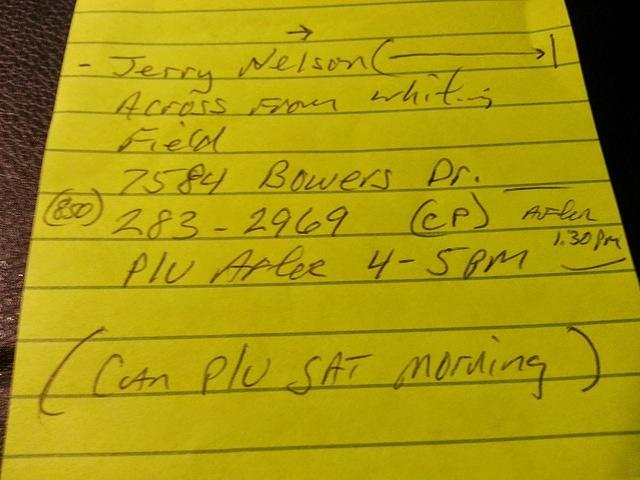 - Jerry Nelson
Across From Whiting
Field
7584 Bowers Dr.
(850) 283-2969 (CP) After
1:30 pm
P/U After 4-5 pm
(Can P/U SAT morning)